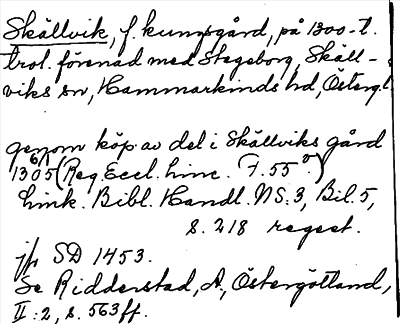 Skällvik, f. kungsgård, på 1300-t.
trol. förenad med Stegeborg, Skäll-
viks sn, Hammarkinds hd, Östergl.
genom köp av del i Skällviks gård
6/1
1305 (Reg. Eccl. Linc. F. 55 v.)
Link. Bibl. Handl. NS:3, Bil. 5,
s. 218 regest.
jfr SD 1453.
Se Ridderstad, A., Östergötland,
II:2, s. 563 ff.